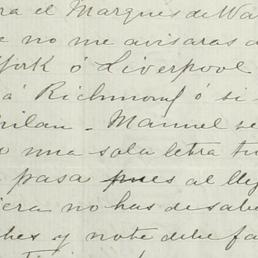 ra el Marques de Wa
e no me avisaras d
York ó Liverpool
á Richmond ó si
Milan - Manuel se
o una sola letra tu
pasa pues al lle
iera no has de sabe
hes y note debe fa